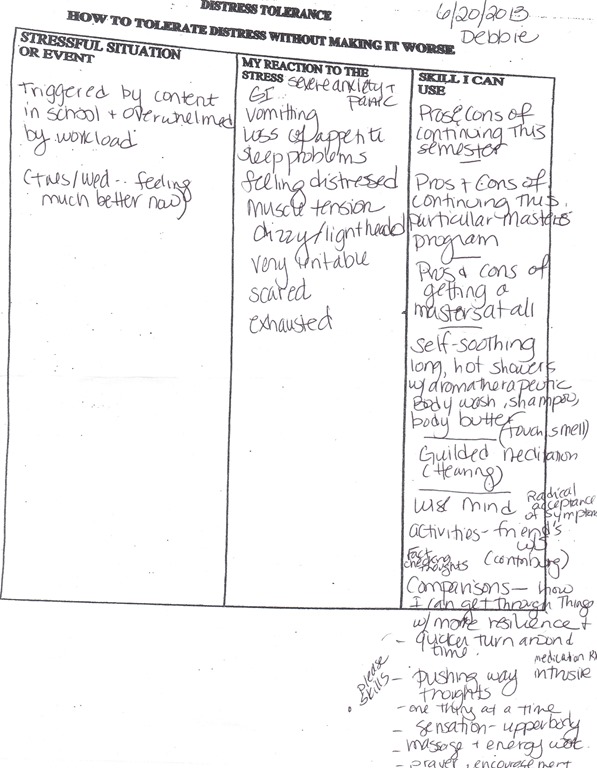 DISTRESS TOLERANCE
HOW TO TOLERATE DISTRESS WITHOUT MAKING IT WORSE
6/20/2013
Debbie
STRESSFUL SITUATION
OR EVENT
Triggered by content
in school + overwhelmed
by workload
(tues/wed -- feeling
much better now)
MY REACTION TO THE
STRESS severe anxiety +
panic
GI
vomiting
loss of appetite
sleep problems
feeling distressed
muscle tension
dizzy/lighthead
very irritable
scared
exhausted
SKILL I CAN
USE
Pros & cons of
continuing this
semester
Pros + Cons of
continuing this
particular masters
program
Pros & cons of
getting a
masters at all
self-soothing
long, hot showers
w/aromatherapeutic
Body wash, shampoo,
body butter
(touch, smell)
Guilded Meditation
(Hearing)
wise mind
Radical
acceptance
of symptoms
activities - friend's
Fact
checking
thoughts
(contributing)
Comparisons — how
I can get through things
w/ more resilience +
- quicker turn around
time.
medication Rx
Please
skills
- pushing way intrusive
thoughts
- one thing at a time
- sensation - upperbody
- massage + energy work
- prayer + encouragement